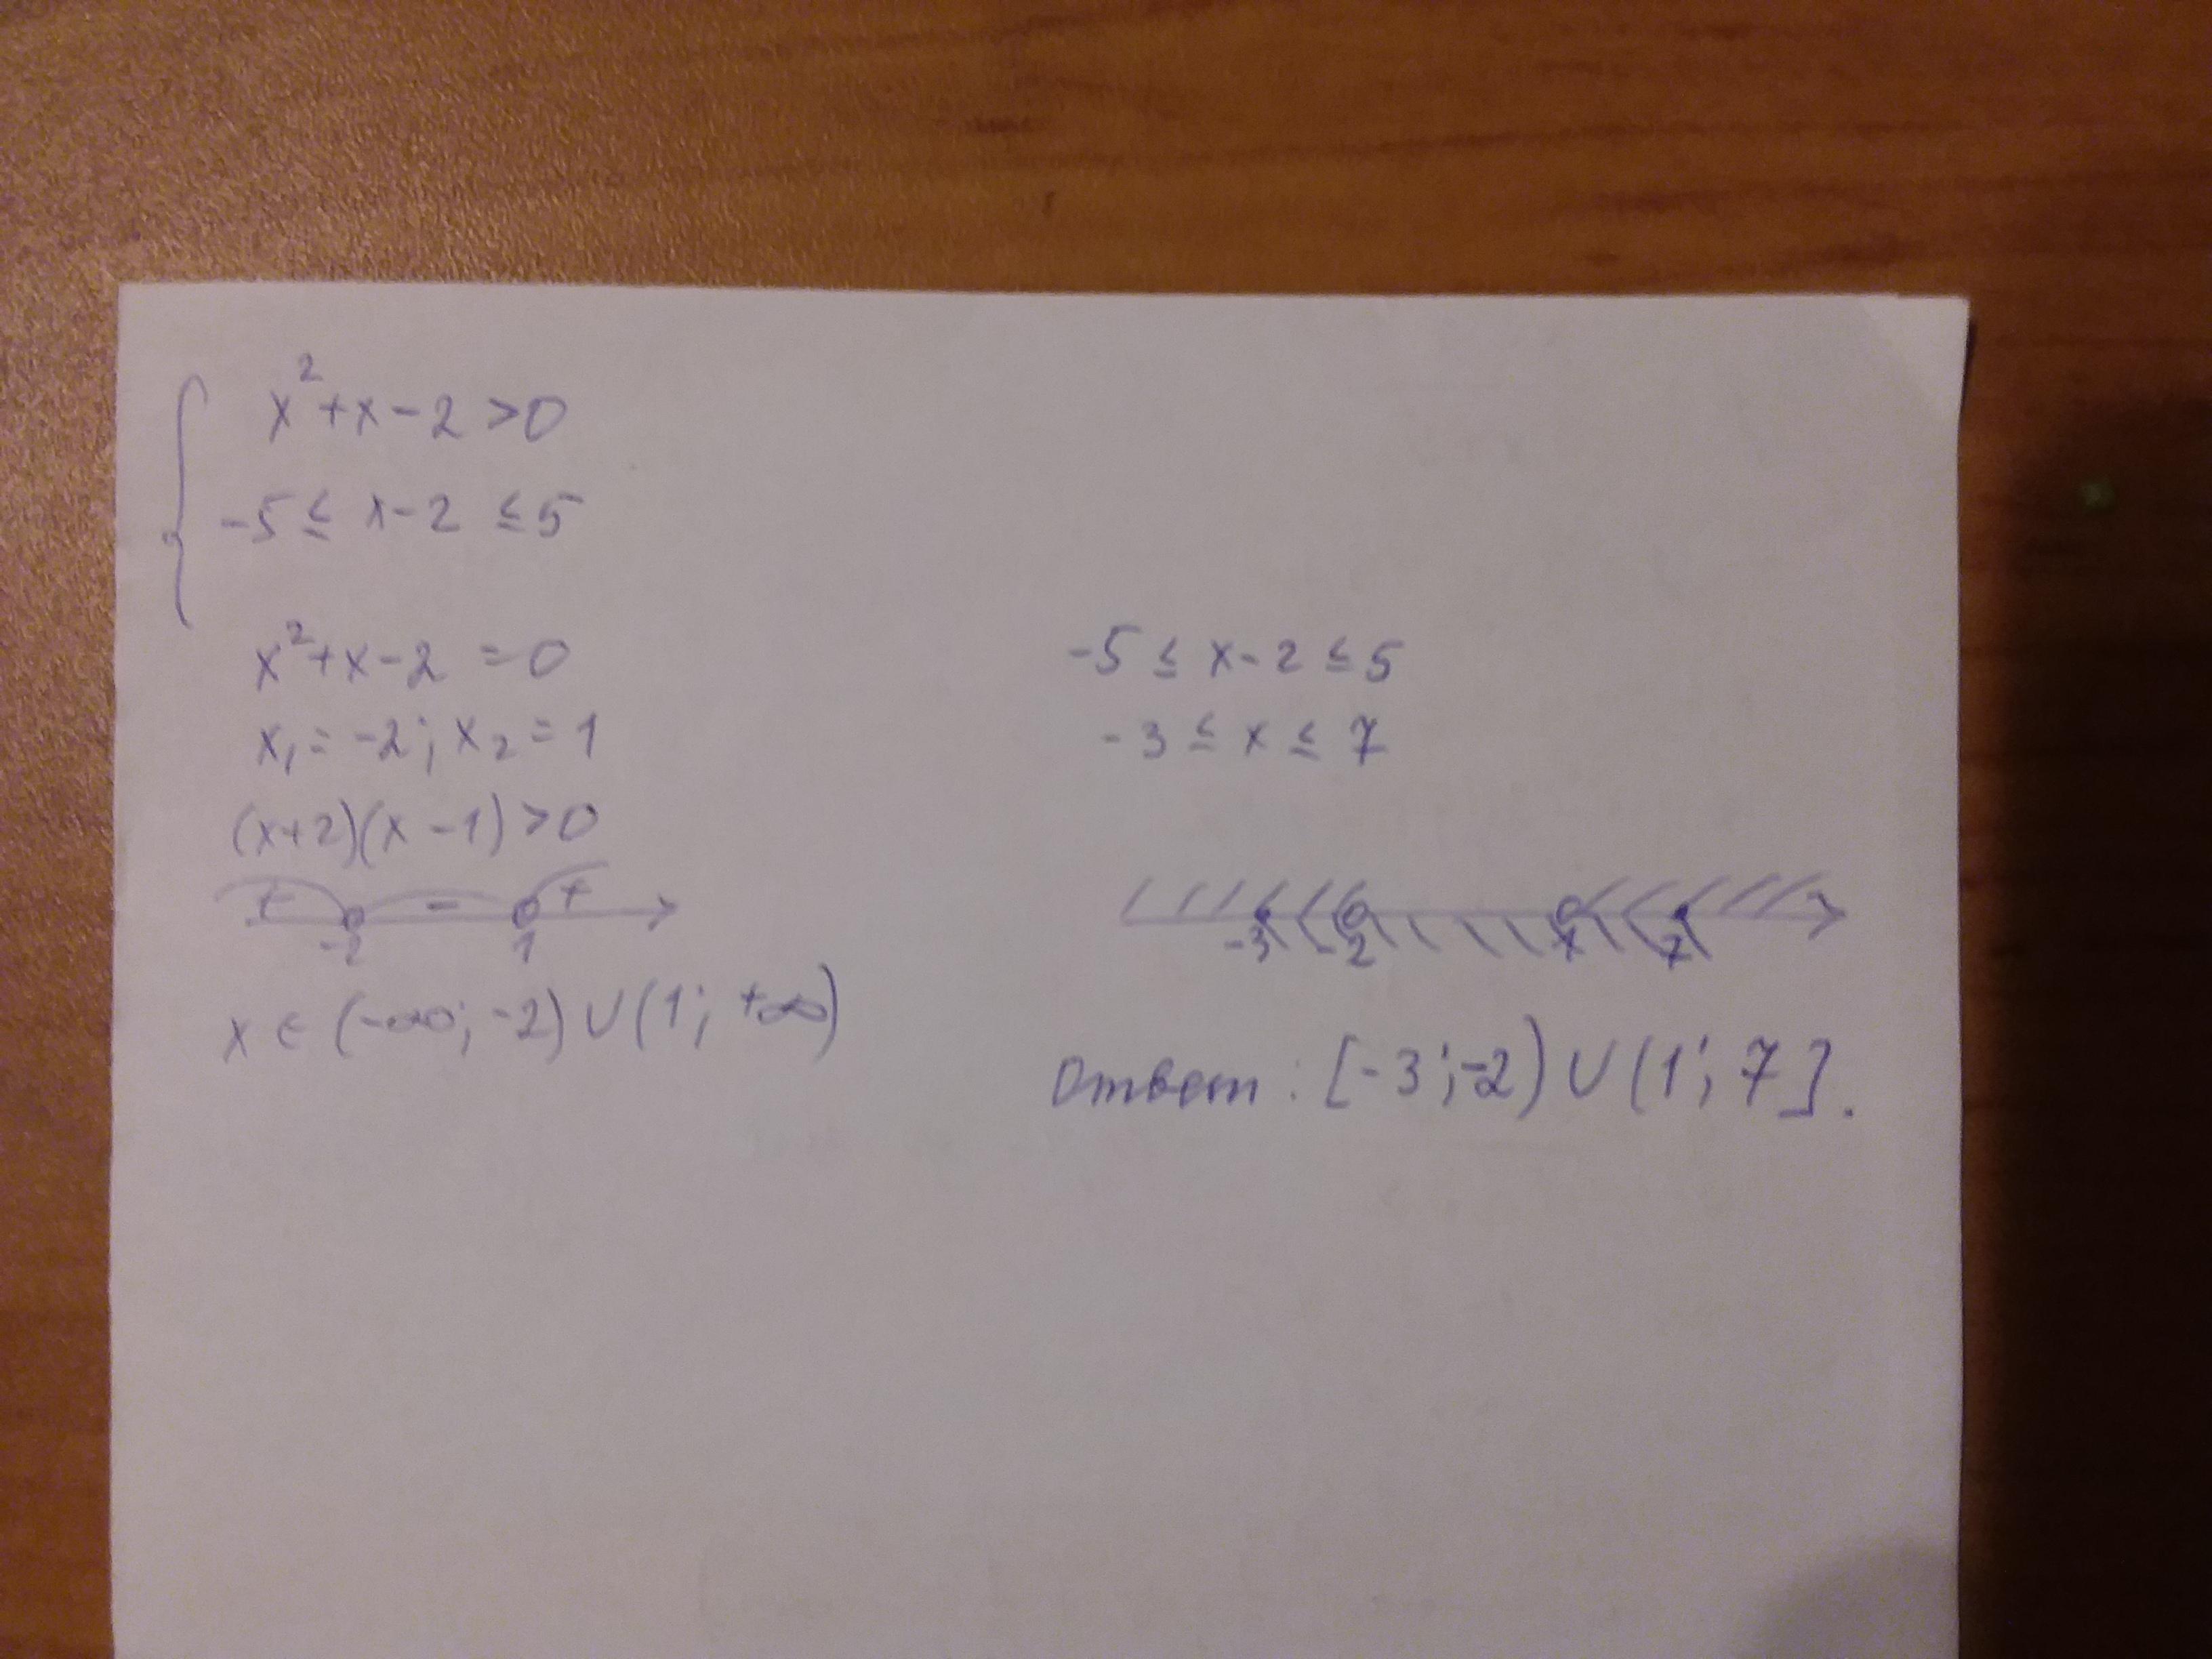 x²+x-2>0
-5≤ x-2 ≤5
x²+x-2 =0
x₁= -2; x₂=1
(x+2)(x-1)>0
+ - +
-2 1
x∈(-∞; -2)∪(1; +∞)
-5≤ x-2≤5
-3≤ x ≤ 7
-3 -2 1 7
Ответ: [-3;-2)∪(1; 7].